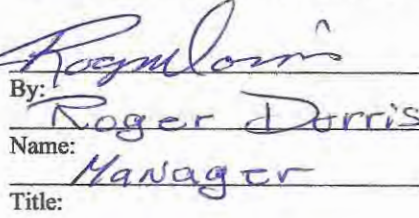 By:
Roger Dorris
Name:
Manager
Title: